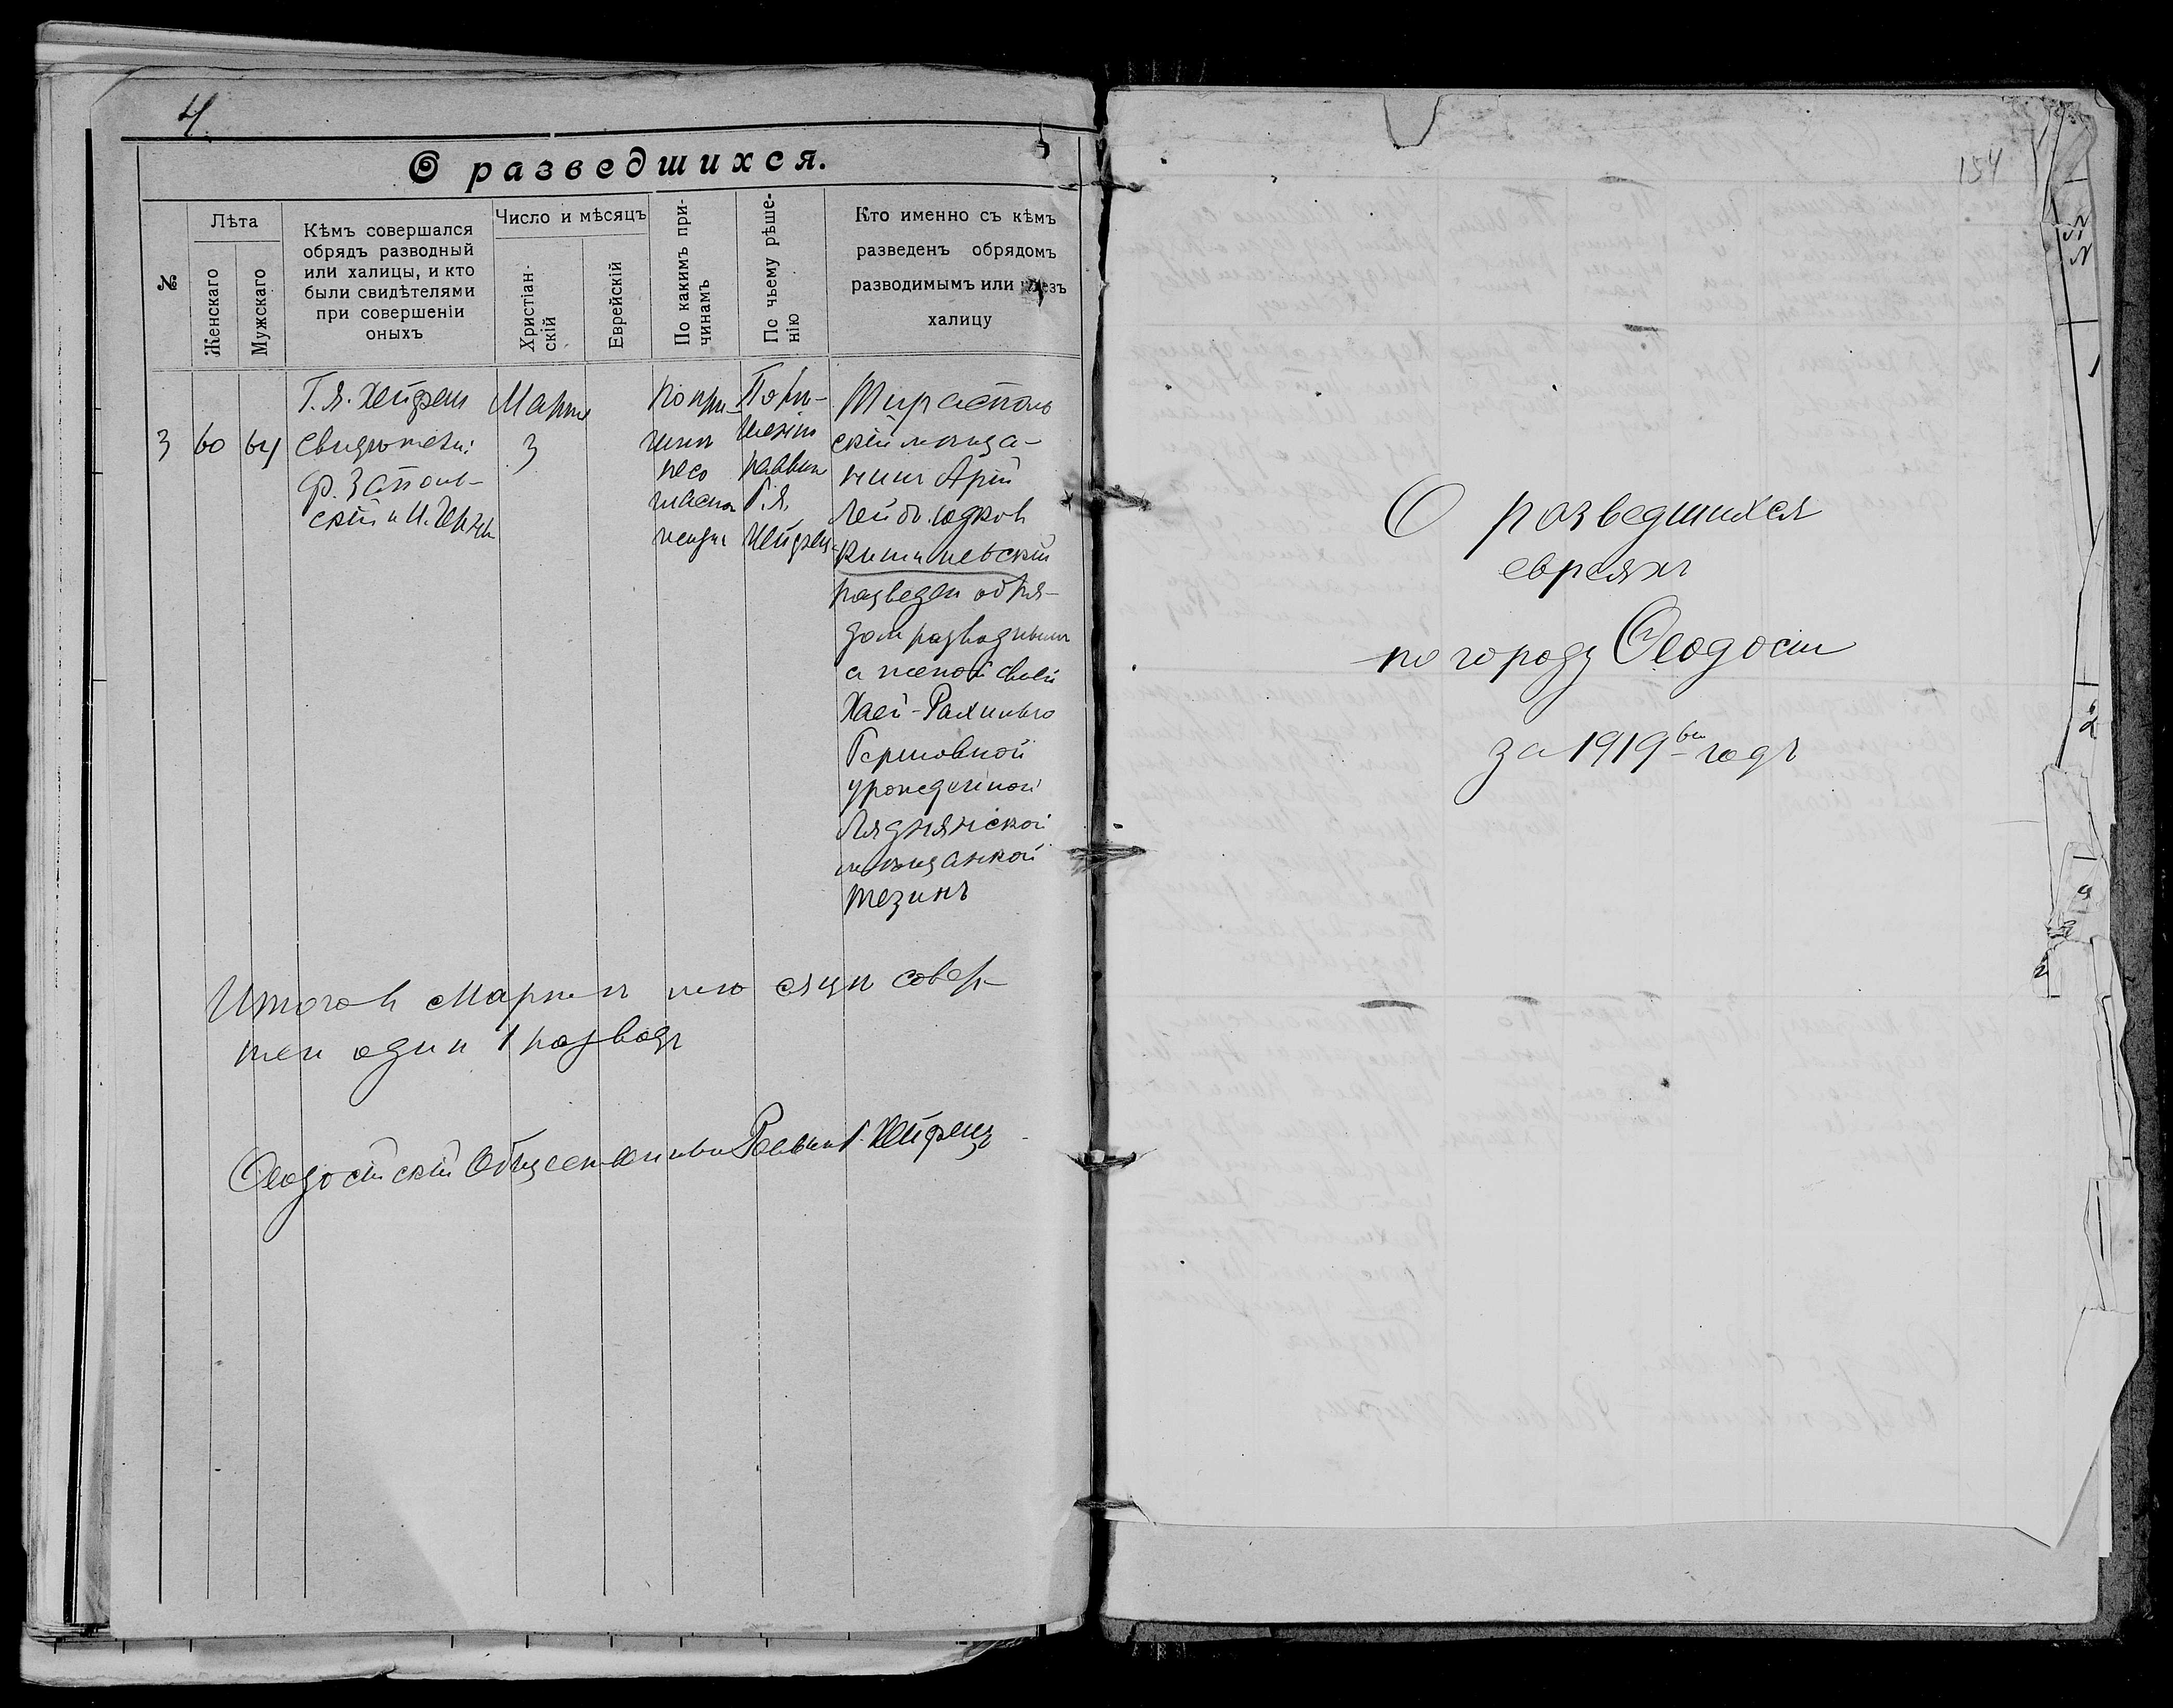 4
О разведшихся.
№
Лѣта
Женскаго
Мужскаго
Кѣмъ совершался
обрядъ разводный
или халицы, и кто
были свидѣтелями
при совершеніи
оныхъ
Число и мѣсяцъ
Христіан-
скій
Еврейскій
По какимъ при-
чинамъ
По чьему рѣше-
нію
Кто именно съ кѣмъ
разведенъ обрядомъ
разводимымъ или чрезъ
халицу
3
60
64
Г. Я. Хейфец
свидѣтели:
Ф. Заполь-
скій и И.
Марта
3
По при-
чинѣ
несо
гласной
По рѣ-
шенію
раввина
Г. Я.
Хейфец
Тирасполь
скій мѣща-
нинъ Арій
Лейб. Юдков
Кишиневскій
разведен обря-
дом разводным
с женой своей
Хаей-Рахилью
Гершовной
урожденной
Ляднянской
мѣщанкой
Итого в Мартѣ мѣсяцѣ совер-
шен один 1 разводъ
Ѳеодосійскій Общественный Раввин Г. Хейфецъ
154
О разведшихся
евреяхъ
по городу Ѳеодосіи
за 1919 годъ